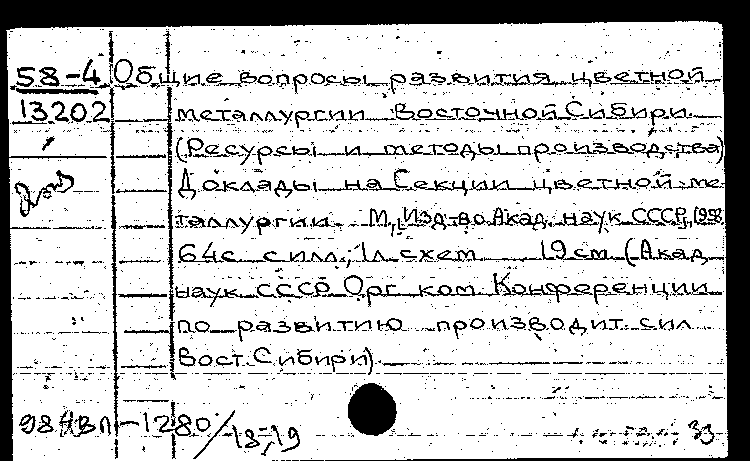 58-4 Общие вопросы развития цветной
13202 металлургии Восточной Сибири.
(Ресурсы и методы производства)
Доклады на Секции цветной ме-
таллургии. М., Изд-во Акад. наук СССР, 1958
64 с. с илл.; 1 л. схем 19 см (Акад.
наук СССР Орг. ком. Конференции
по развитию производит. сил
Вост. Сибири)
18-19
33